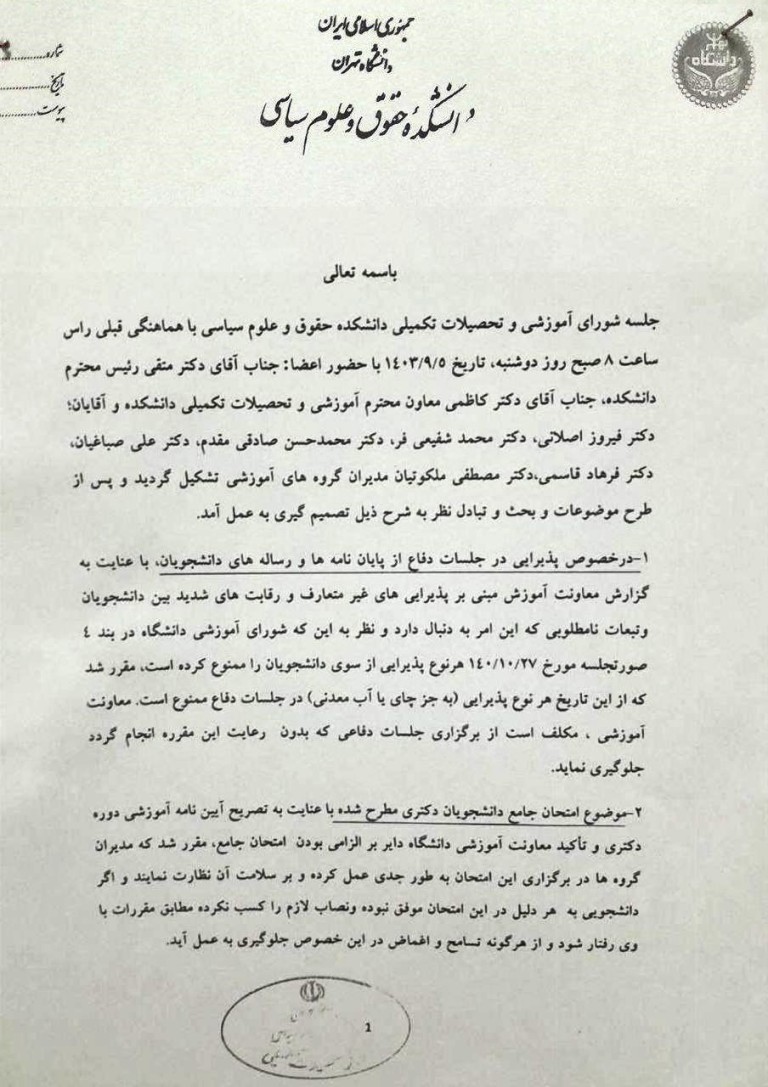 جمهوری اسلامی ایران
دانشگاه تهران
دانشکدهٔ حقوق و علوم سیاسی
شماره
تاریخ
پیوست
باسمه تعالی
جلسه شورای آموزشی و تحصیلات تکمیلی دانشکده حقوق و علوم سیاسی با هماهنگی قبلی راس
ساعت ۸ صبح روز دوشنبه، تاریخ ۱٤۰۳/۹/۵ با حضور اعضا: جناب آقای دکتر متقی رئیس محترم
دانشکده، جناب آقای دکتر کاظمی معاون محترم آموزشی و تحصیلات تکمیلی دانشکده و آقایان؛
دکتر فیروز اصلانی، دکتر محمد شفیعی فر، دکتر محمدحسن صادقی مقدم، دکتر علی صباغیان،
دکتر فرهاد قاسمی،دکتر مصطفی ملکوتیان مدیران گروه های آموزشی تشکیل گردید و پس از
طرح موضوعات و بحث و تبادل نظر به شرح ذیل تصمیم گیری به عمل آمد.
۱-درخصوص پذیرایی در جلسات دفاع از پایان نامه ها و رساله های دانشجویان، با عنایت به
گزارش معاونت آموزش مبنی بر پذیرایی های غیر متعارف و رقابت های شدید بین دانشجویان
وتبعات نامطلوبی که این امر به دنبال دارد و نظر به این که شورای آموزشی دانشگاه در بند ٤
صورتجلسه مورخ ۱٤۰/۱۰/۲۷ هرنوع پذیرایی از سوی دانشجویان را ممنوع کرده است، مقرر شد
که از این تاریخ هر نوع پذیرایی (به جز چای یا آب معدنی) در جلسات دفاع ممنوع است. معاونت
آموزشی ، مکلف است از برگزاری جلسات دفاعی که بدون رعایت این مقرره انجام گردد
جلوگیری نماید.
۲-موضوع امتحان جامع دانشجویان دکتری مطرح شده با عنایت به تصریح آیین نامه آموزشی دوره
دکتری و تأکید معاونت آموزشی دانشگاه دایر بر الزامی بودن امتحان جامع، مقرر شد که مدیران
گروه ها در برگزاری این امتحان به طور جدی عمل کرده و بر سلامت آن نظارت نمایند و اگر
دانشجویی به هر دلیل در این امتحان موفق نبوده ونصاب لازم را کسب نکرده مطابق مقررات با
وی رفتار شود و از هرگونه تسامح و اغماض در این خصوص جلوگیری به عمل آید.
1